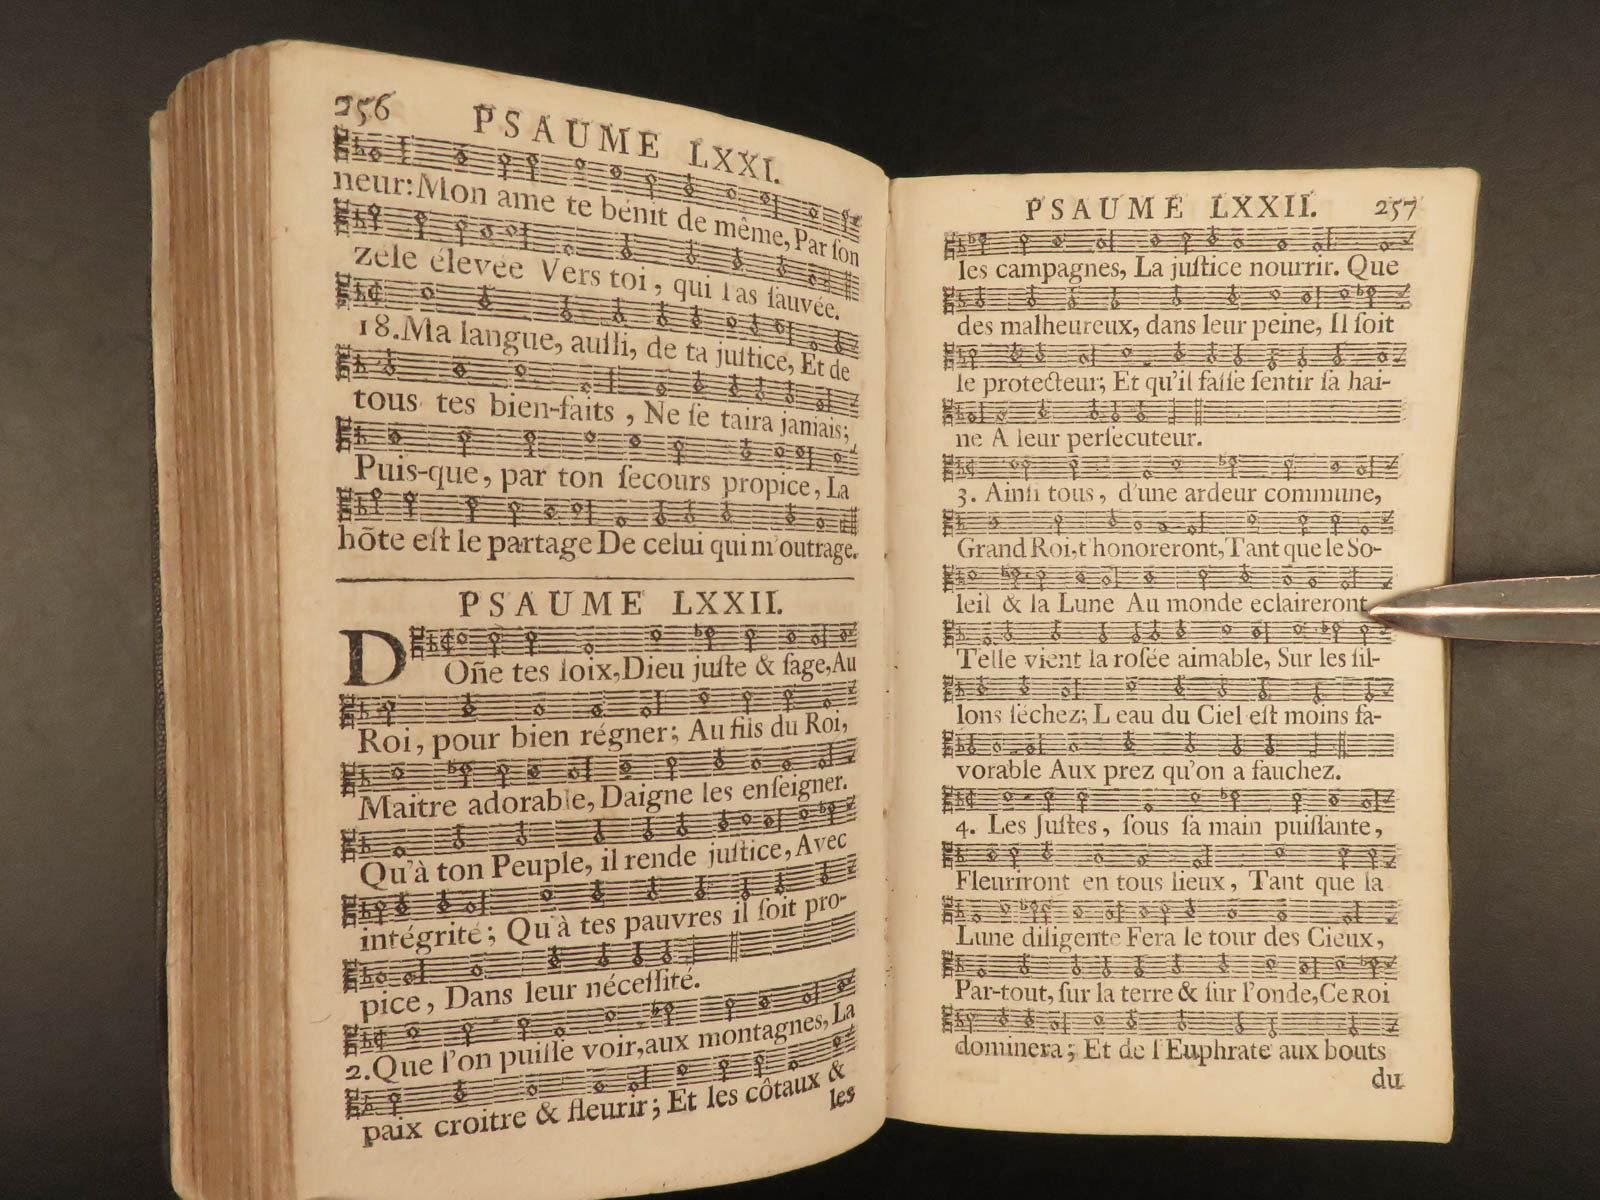 256 PSAUME LXXI.
neur: Mon ame te bénit de même, Par ſon
zele élevée Vers toi, qui l'as ſauvée.
18. Ma langue, auſſi, de ta juſtice, Et de
tous tes bien-faits, Ne ſe taira jamais;
Puis-que, par ton ſecours propice, La
hõte eſt le partage De celui qui m'outrage.
PSAUME LXXII.
DOñe tes loix, Dieu juſte & ſage, Au
Roi, pour bien régner; Au fils du Roi,
Maitre adorable, Daigne les enſeigner.
Qu'à ton Peuple, il rende juſtice, Avec
intégrité; Qu'à tes pauvres il ſoit pro-
pice, Dans leur néceſſité.
2. Que l'on puiſſe voir, aux montagnes, La
paix croitre & fleurir; Et les côtaux &
les
PSAUME LXXII. 257
les campagnes, La juſtice nourrir. Que
des malheureux, dans leur peine, Il ſoit
le protecteur; Et qu'il faſſe ſentir ſa hai-
ne A leur perſécuteur.
3. Ainſi tous, d'une ardeur commune,
Grand Roi, t'honoreront, Tant que le So-
leil & la Lune Au monde eclaireront
Telle vient la roſée aimable, Sur les ſil-
lons ſéchez; L'eau du Ciel eſt moins fa-
vorable Aux prez qu'on a fauchez.
4. Les Juſtes, ſous ſa main puiſſante,
Fleuriront en tous lieux, Tant que la
Lune diligente Fera le tour des Cieux,
Par-tout, ſur la terre & ſur l'onde, Ce ROI
dominera; Et de l'Euphrate aux bouts
du